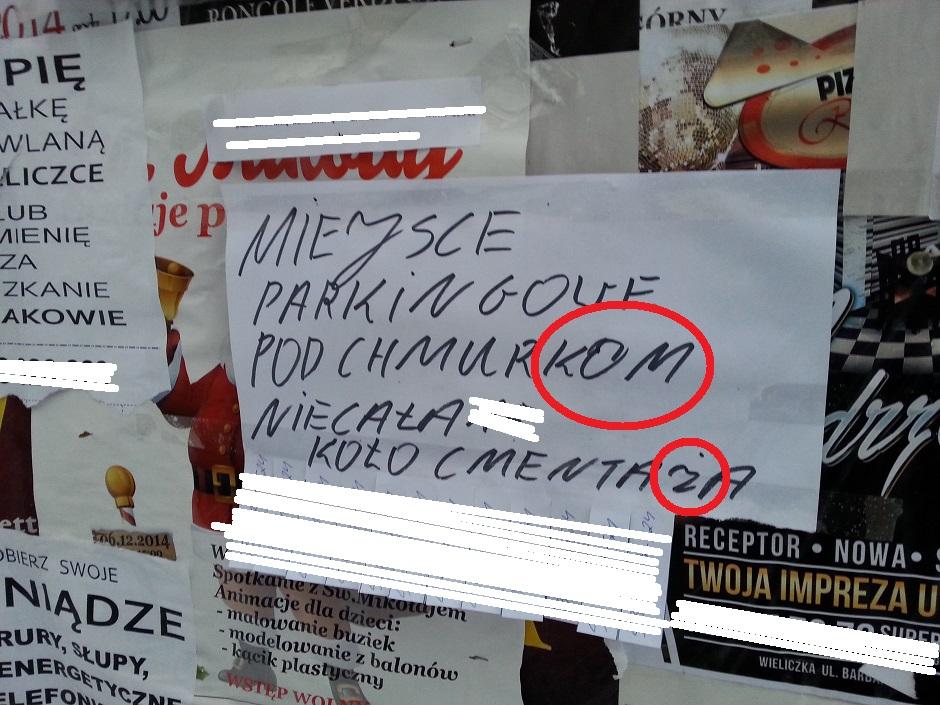 2014
RONCOLE VERDI
GÓRNY
PIĘ
AŁKĘ
WLANĄ
LICZCE
LUB
MIENIĘ
ZA
ZKANIE
AKOWIE
je p
PIZ
MIEJSCE
PARKiNGOWE
POD CHMURKOM
NIECAŁA
KOŁO CMENTAżA
ett
06.12.2014
OBIERZ SWOJE
NIĄDZE
RURY, SŁUPY,
ENERGETYCZNE
ELEFON
Spotkanie z Św.Mikołajem
Animacje dla dzieci:
- malowanie buziek
- modelowanie z balonów
- kącik plastyczny
WSTĘP WOLN
drz
RECEPTOR • NOWA • S
TWOJA IMPREZA U
SUPER
WIELICZKA UL. BARBA